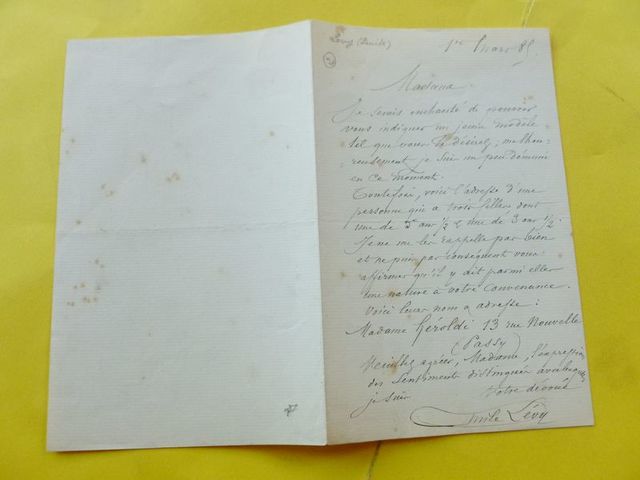 Levy (Emile)
2
1er Mars 85
Madame
Je serais enchanté de pouvoir
vous indiquer un jeune modèle
tel que vous le désirez, malheu-
-reusement je suis un peu démuni
en ce moment.
Toutefois, voici l'adresse d'une
personne qui a trois filles dont
une de 5 ans 1/2 & une de 3 ans 1/2.
Je ne me les rappelle pas bien
et ne puis par conséquent vous
affirmer qu'il y ait parmi elles
une nature à votre convenance.
Voici leurs nom & adresse :
Madame Géroldi 13 rue Nouvelle
(Passy)
Veuillez agréer, Madame, l'expression
des sentiments distingués avec lesquels
je suis votre dévoué
Emile Lévy